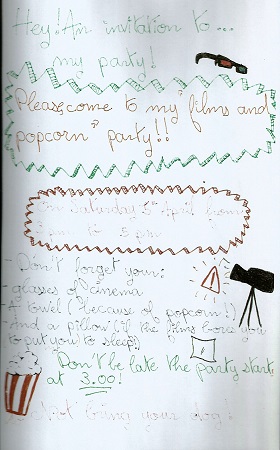 Hey! An invitation to...
my party!
Please, come to my "films and
popcorn" party!!
On Saturday 5th April from
3 pm to 5 pm
- Don't forget your:
- glasses of cinema
- A towel (because of popcorn!)
- And a pillow (if the films bores you
to put you to sleep)
Don't be late the party starts
at 3.00!
Don't bring your dog!